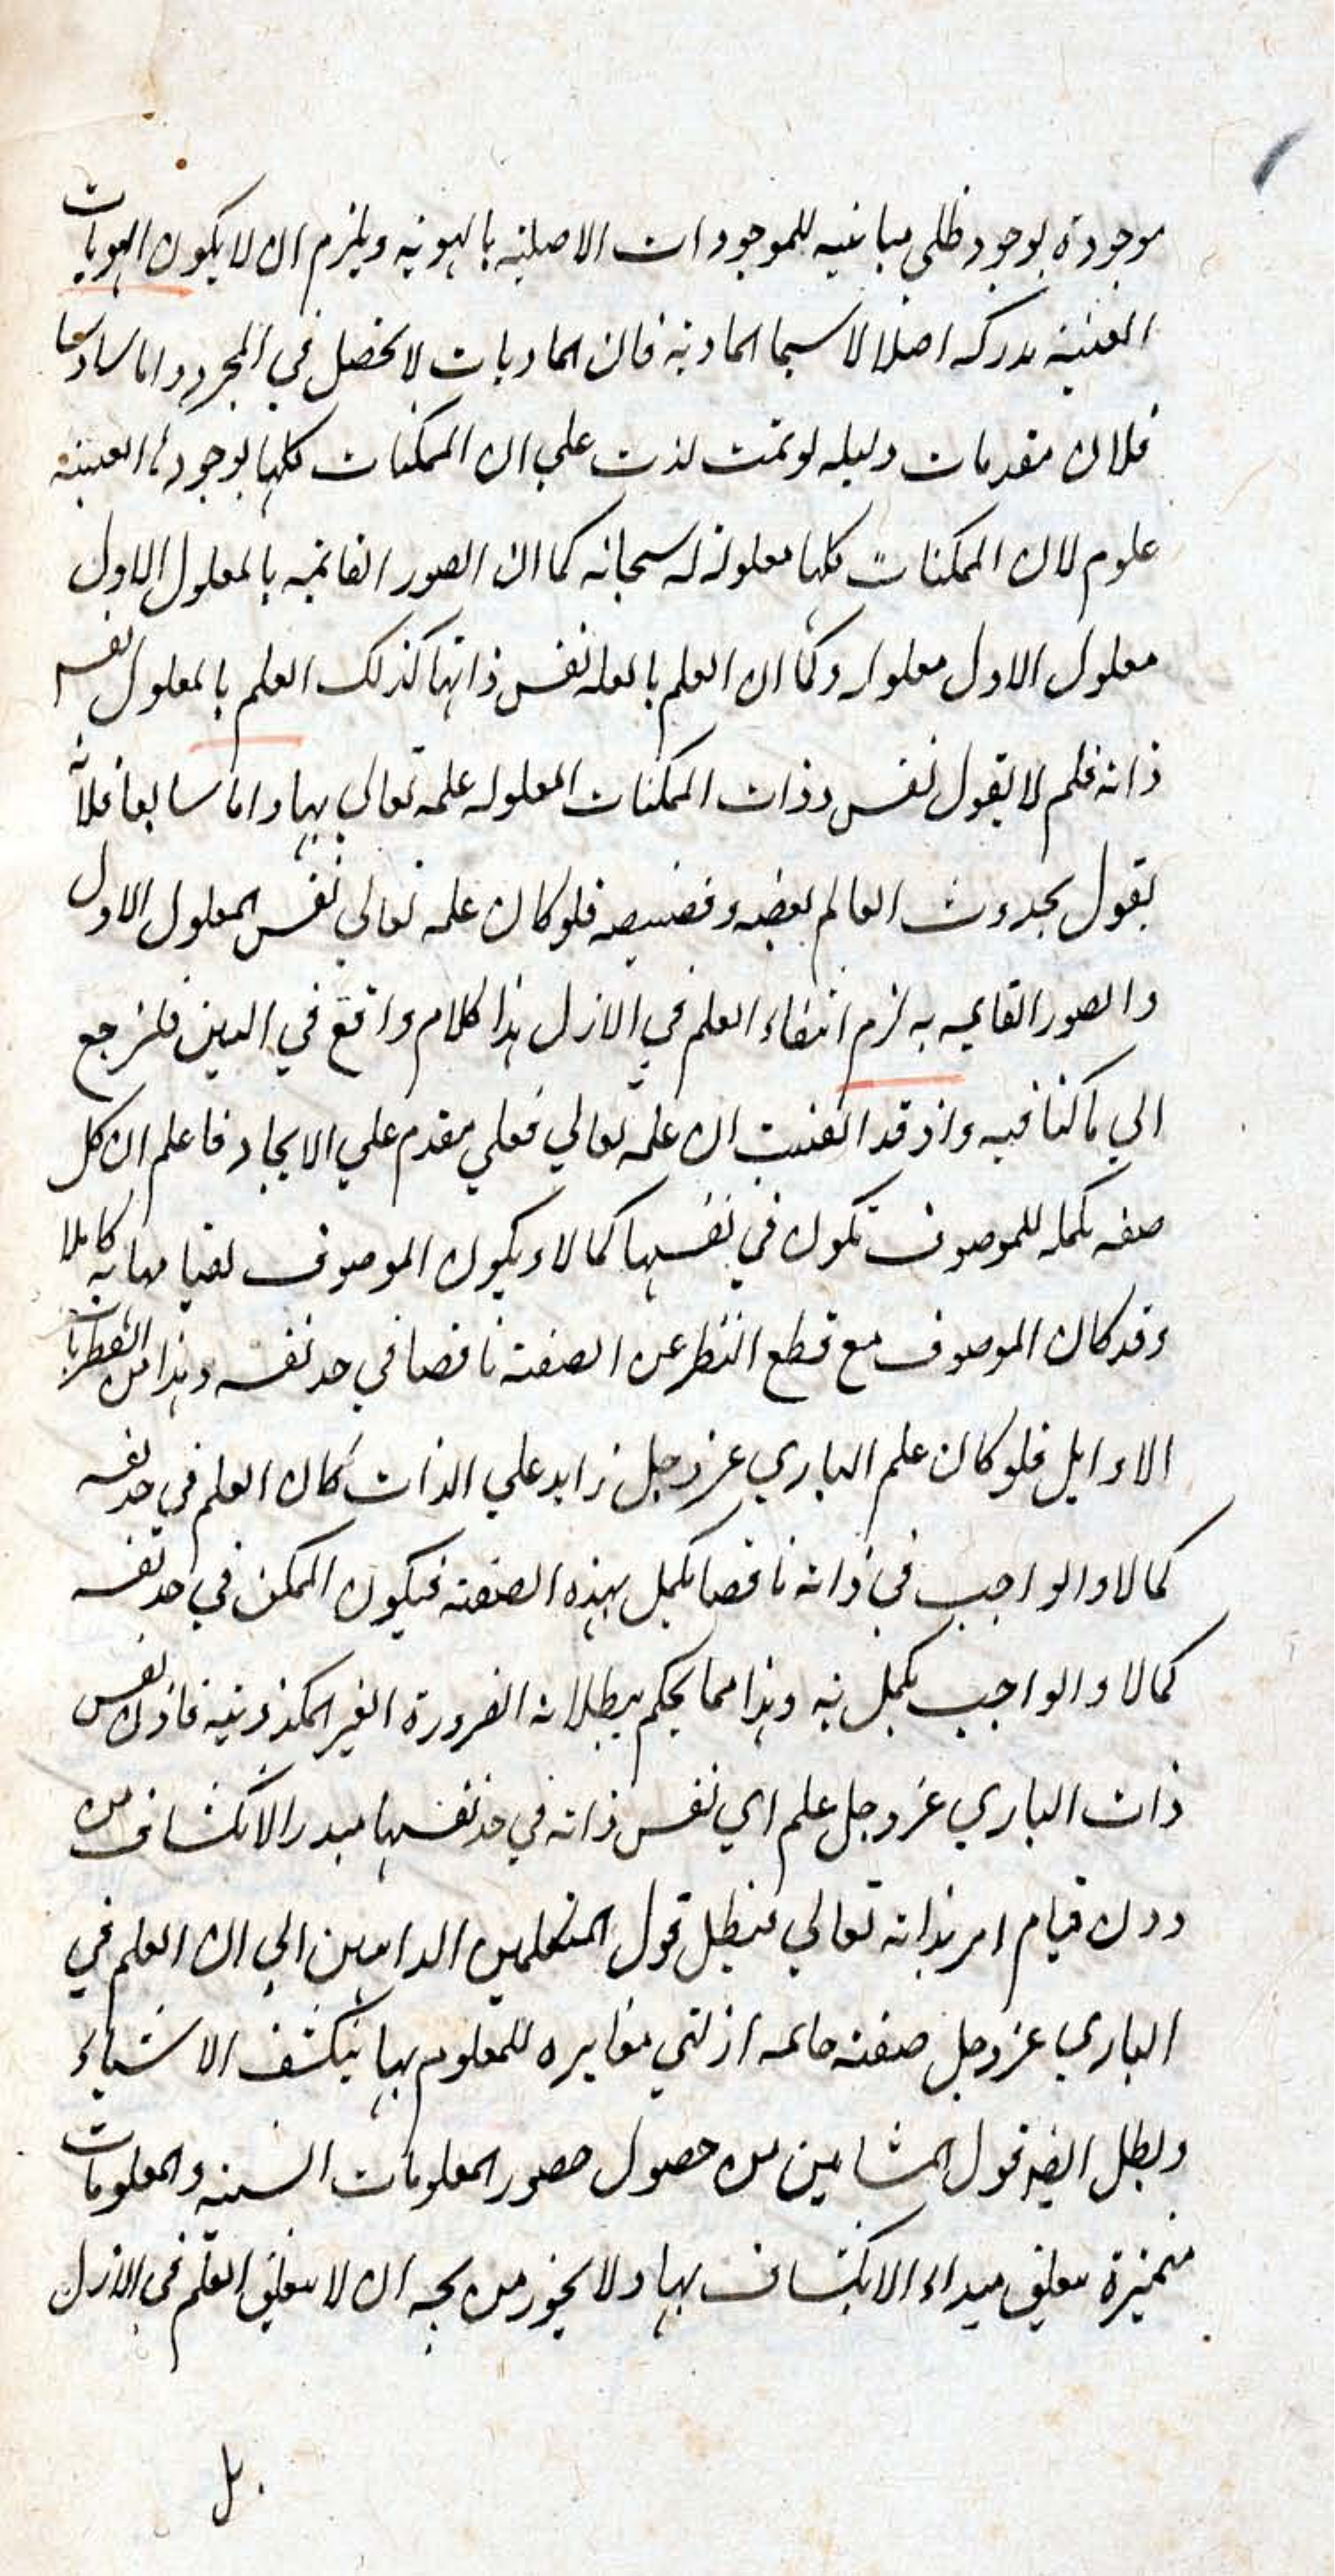 موجودة بوجود ظلي مباينيه للموجودات الاصلية بالهوية ويلزم ان لا يكون الهويات
العينية مدركه اصلا لا سيما المادية فان الماديات لا تحصل في المجرد واما سادسا
فلان مقدمات دليله لو تمت لدت علي ان الممكنات كلها بوجودها العينية
علوم لان الممكنات كلها معلولة له سبحانه كما ان الصور القائمة بالمعلول الاول
معلول الاول معلوله وكما ان العلم بالعلة نفس ذاتها كذلك العلم بالمعلول نفس
ذاته فلم لا يقول نفس ذوات الممكنات المعلوله علمه تعالي بها واما سابعا فلانه
يقول بحدوث العالم بعضه وفضيضه فلو كان علمه تعالي نفس المعلول الاول
والصور القايمه به لزم انتفاء العلم في الازل هذا كلام واقع في البين فلنرجع
الي ما كنا فيه واذ قد اتقنت ان علمه تعالي فعلي مقدم علي الايجاد فاعلم ان كل
صفه مكمله للموصوف تكون في نفسها كمالا ويكون الموصوف لقيامها به كاملا
وقد كان الموصوف مع قطع النظر عن الصفة ناقصا في حد نفسه وهذا من الفطريات
الاوايل فلو كان علم الباري عز وجل زايد علي الذات كان العلم في حد نفسه
كمالا والواجب في ذاته ناقصا يكمل بهذه الصفة فيكون الممكن في حد نفسه
كمالا والواجب يكمل به وهذا مما يحكم ببطلانه الضرورة الغير المكذوبية فاذن نفس
ذات الباري عز وجل علم اي نفس ذاته في حد نفسها مبدء الانكشاف من
دون قيام امر بذاته تعالي فبطل قول المتكلمين الذاهبين الي ان العلم في
الباري عز وجل صفة ازلي مغايره للمعلوم بها ينكشف الاشياء
وبطل ايضا قول المشايين من حصول صور المعلومات والمعلومات
متميزة يتعلق مبداء الانكشاف بها ولا يجوز من ان لا يتعلق العلم في الازل
بل